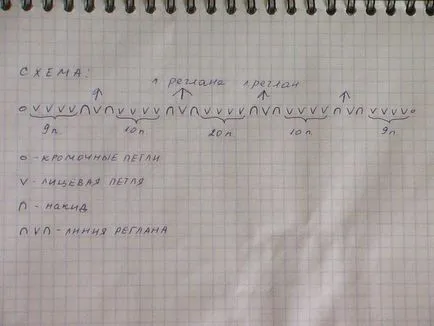 СХЕМА:
л реглана л реглан
o v v v v ∩ v ∩ v v v v ∩ v ∩ v v v v ∩ v ∩ v v v v ∩ v ∩ v v v v o
9п 10п 20п 10п 9п
o - КРОМОЧНЫЕ ПЕТЛИ
v - ЛИЦЕВАЯ ПЕТЛЯ
∩ - НАКИД
∩ v ∩ - ЛИНИЯ РЕГЛАНА